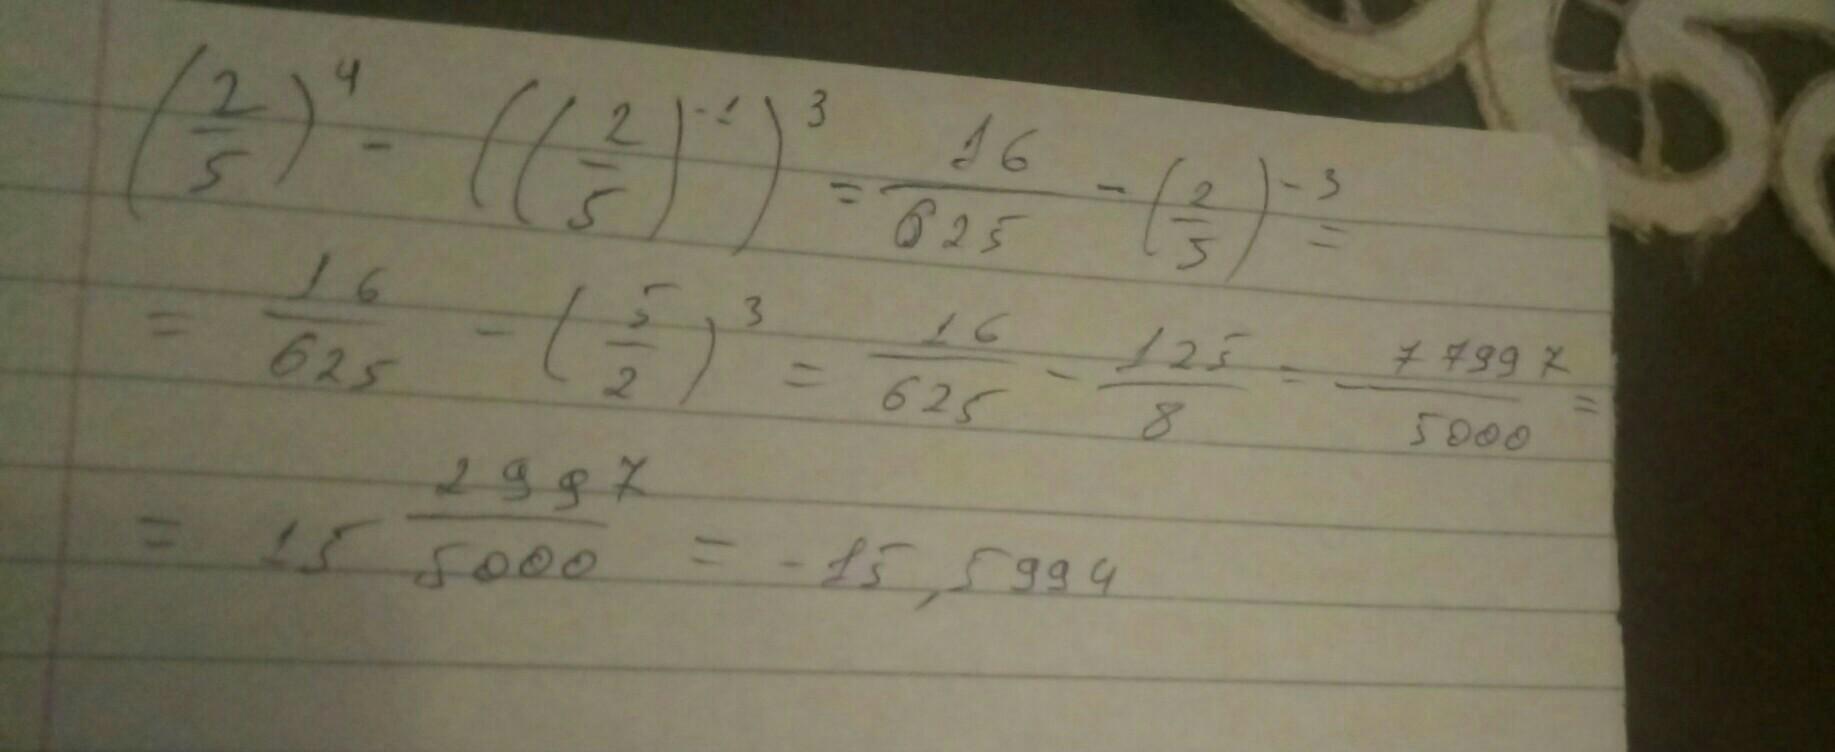 (2/5)^4 - ((2/5)^-1)^3 = 16/625 - (2/5)^-3 =
= 16/625 - (5/2)^3 = 16/625 - 125/8 = 77997/5000 =
= 15 2997/5000 = -15,5994